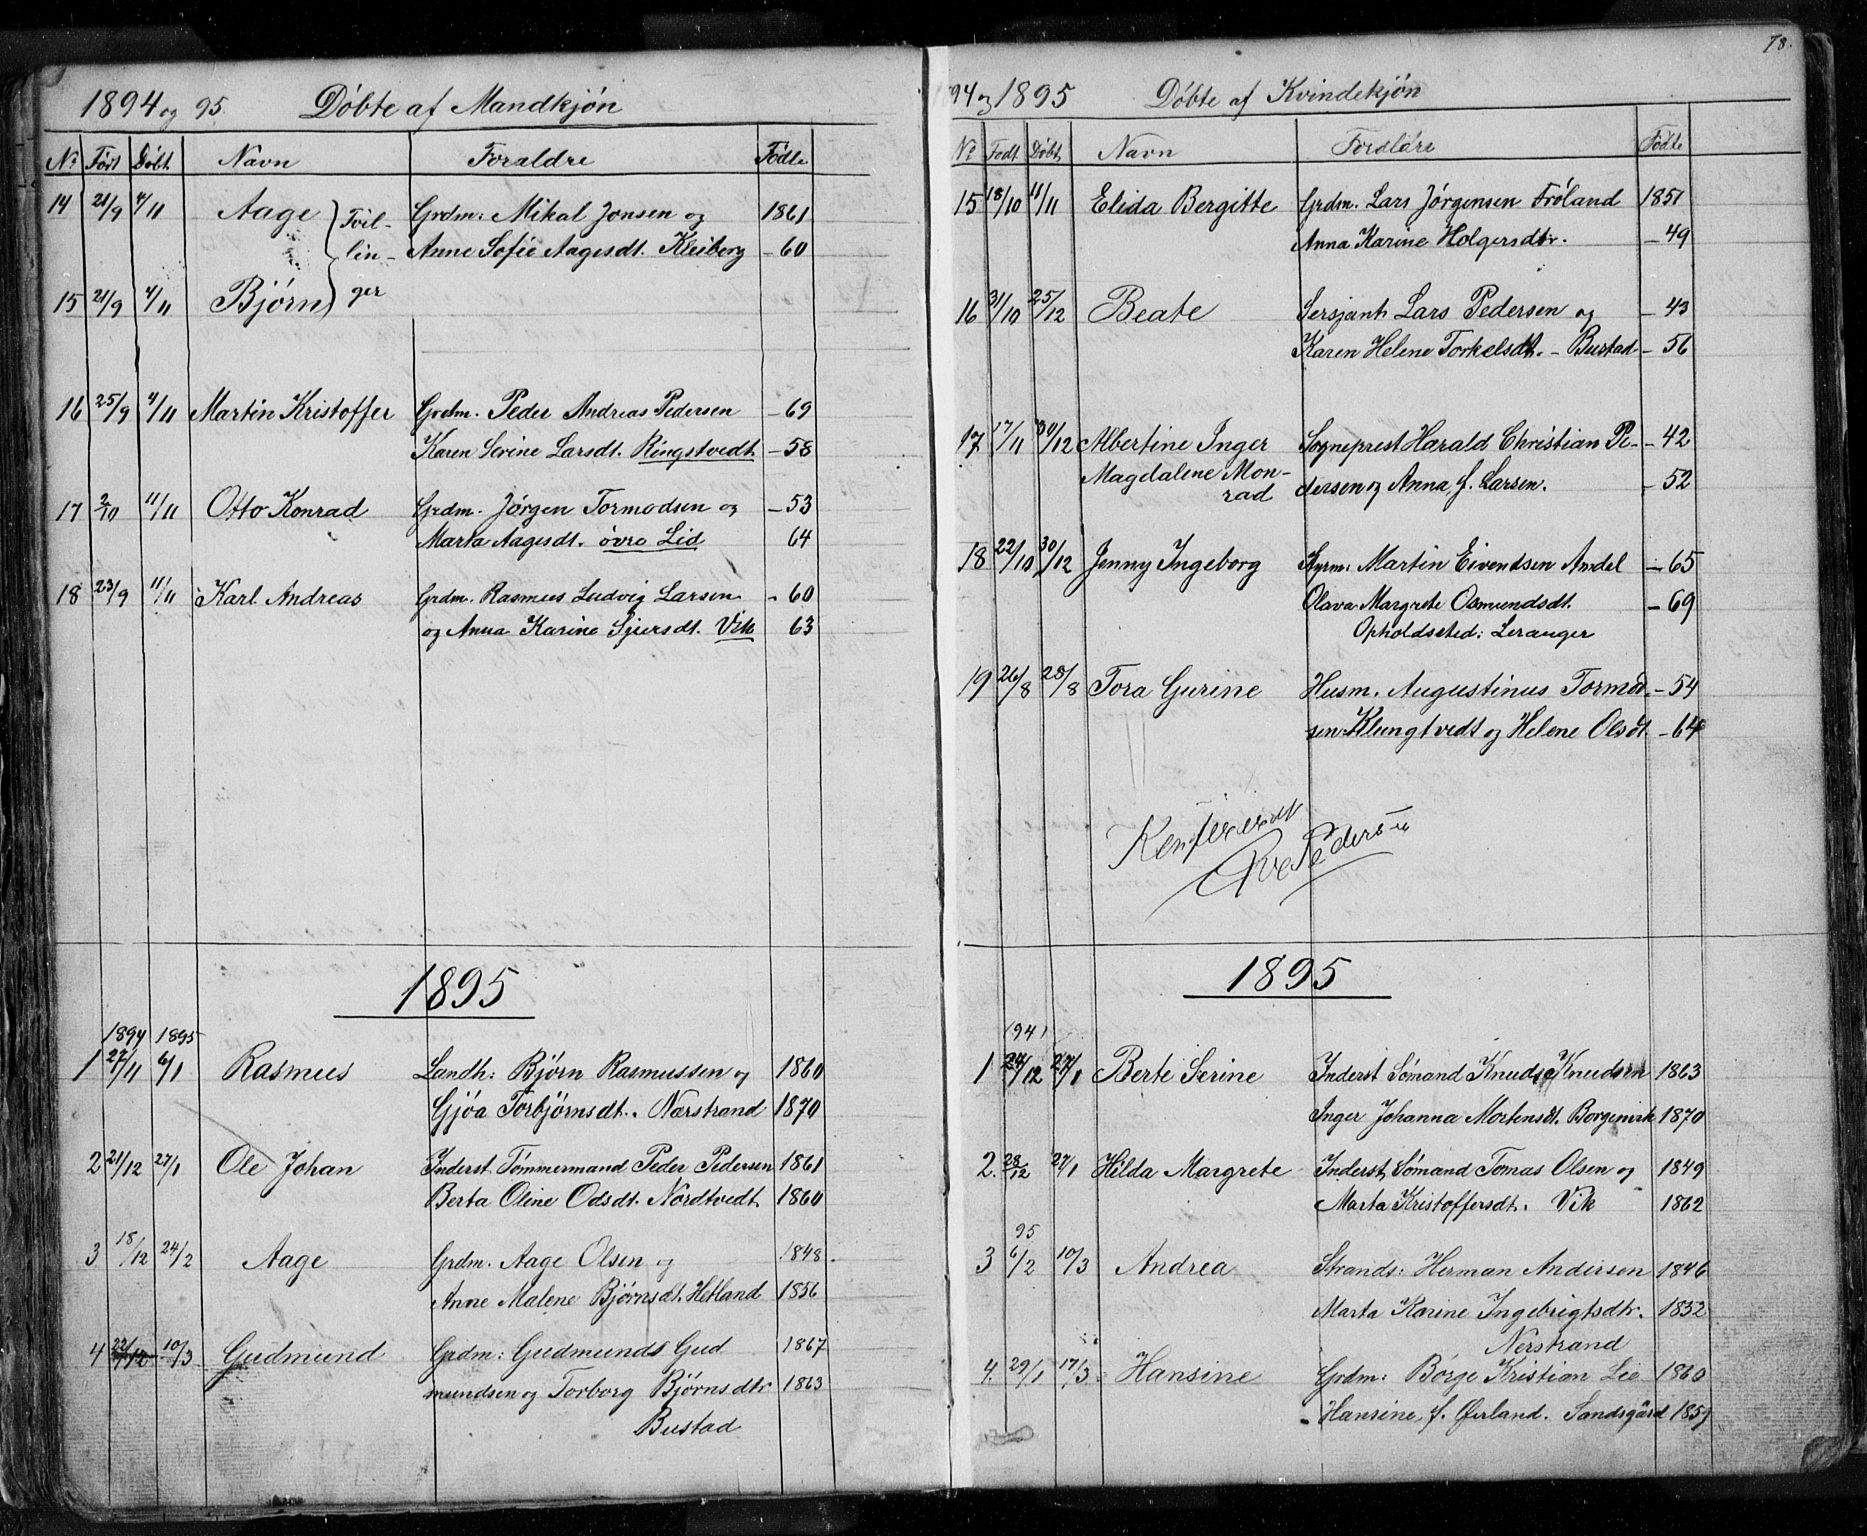 1894 og 95. Døbte af Mandkjøn
No Født Døbt Navn Foraldre Fødte
14 21/9 4/11 Aage } Tvil- Grdm: Mikal Jonsen og 1861
lin- Anne Sofie Aagesdt. Kleiberg - 60
15 21/9 4/11 Bjørn } ger
16 25/9 4/11 Martin Kristoffer Grdm. Peder Andreas Pedersen - 69
Karen Serine Larsdt. Ringstvedt - 58
17 2/10 11/11 Otto Konrad Grdm. Jørgen Tormodsen og - 53
Marta Aagesdt. øvre Lid 64
18 23/9 11/11 Karl Andreas Grdm. Rasmus Ludvig Larsen - 60
og Anna Karine Sjursdt. Vik 63
1895
1894 1895
1 27/11 6/1 Rasmus Landh: Bjørn Rasmussen og 1860
Gjøa Torbjørnsdt. Nærstrand 1870
2 21/12 27/1 Ole Johan Inderst Tømmermand Peder Pedersen 1861
Berta Oline Odsdt. Nordtvedt 1860
3 18/12 24/2 Aage Grdm. Aage Olsen og 1848
Anne Malene Bjørnsdt. Hetland 1856
4 22/12 10/3 Gudmund Grdm: Gudmunds Gud 1867
mundsen og Torborg Bjørnsdtr 1863
Bustad
78.
94 og 1895 Døbte af Kvindekjøn
No Født Døbt Navn Forældre Fødte
15 18/10 11/11 Elida Bergitte Grdm. Lars Jørgensen Frøland 1851
Anna Karine Holgersdtr. - 49
16 31/10 25/12 Beate Sersjant Lars Pedersen og - 43
Karen Helene Torkelsdt. - Bustad - 56
17 17/11 30/12 Albertine Inger Sogneprest Harald Christian Pe- - 42
Magdalene Mon- dersen og Anna f. Larsen. - 52
rad
18 22/10 30/12 Jenny Ingeborg Styrm: Martin Eivendsen Amdel - 65
Olava Margrete Osmundsdt. - 69
Opholdssted: Leranger
19 26/8 28/8 Tora Gurine Husm. Augustinus Tormod - 54
sen Klungtvedt og Helene Olsdt - 64
Konfereret
Ove Pedersen
1895
(94)
1 24/12 27/1 Berte Serine Inderst Sømand Knud Knudsen 1863
Inger Johanna Mortensdt. Borgenvik 1870
2. 28/12 27/1 Hilda Margrete Inderst, Sømand Tomas Olsen og 1849
Marta Kristoffersdt. Vik 1862
95
3 6/2 10/3 Andrea Strands: Herman Andersen 1846
Marta Karine Ingebrigtsdtr. 1852
Nerstrand
4. 29/1 17/3 Hansine Grdm: Børge Kristian Lie 1860
- Hansine f. Øerland. Sandsgård 1859